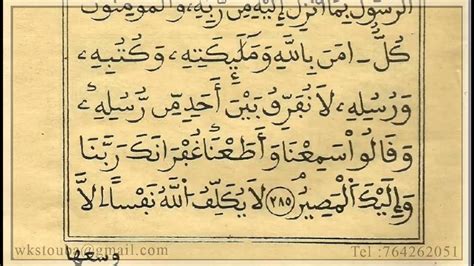 الرَّسُولُ بِمَا أُنزِلَ إِلَيْهِ مِن رَّبِّهِ وَالْمُومِنُونَ
كُلٌّ ـ امَنَ بِاللَّهِ وَمَلَٰٓئِكَتِهِ، وَكُتُبِهِ،
وَرُسُلِهِ، لَا نُفَرِّقُ بَيْنَ أَحَدٍ مِّن رُّسُلِهِ،
وَقَالُواْ سَمِعْنَا وَأَطَعْنَا غُفْرَانَكَ رَبَّنَا
وَإِلَيْكَ الْمَصِيرُ ٢٨٥ لَا يُكَلِّفُ اللَّهُ نَفْساً الَّا
وسعها
wkstouba@gmail.com
Tel :764262051